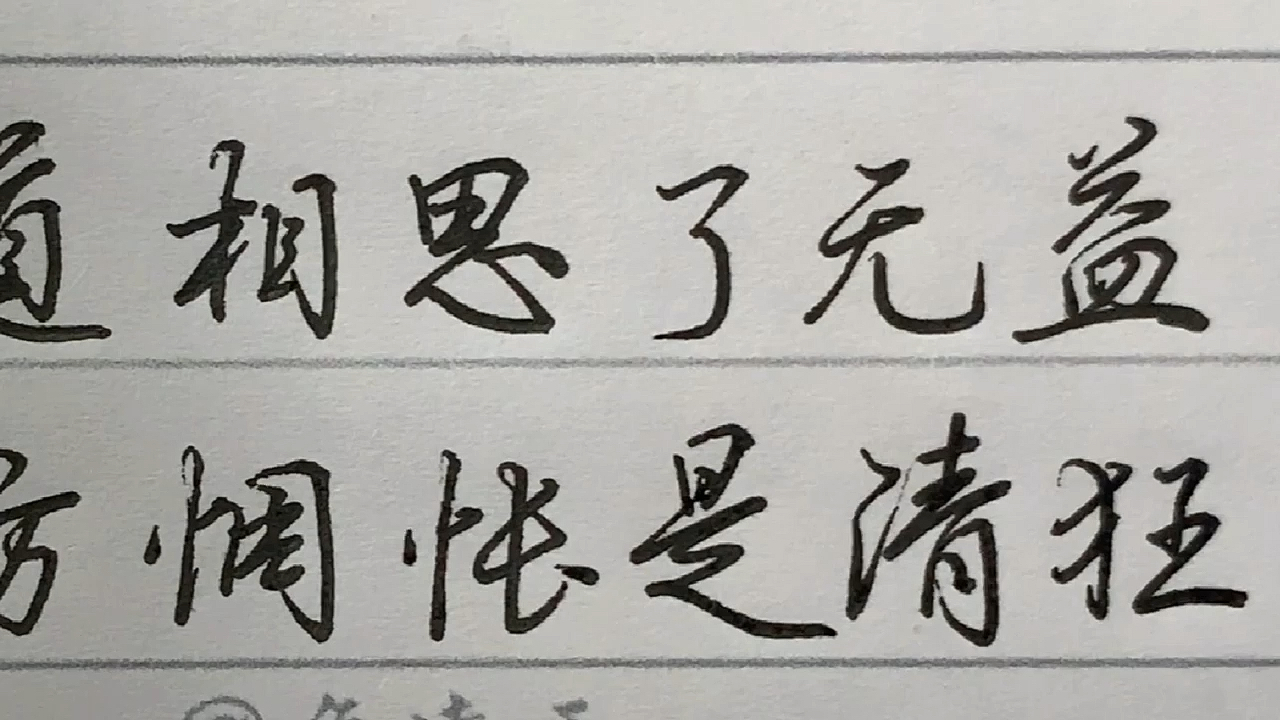 道相思了无益
妨惆怅是清狂